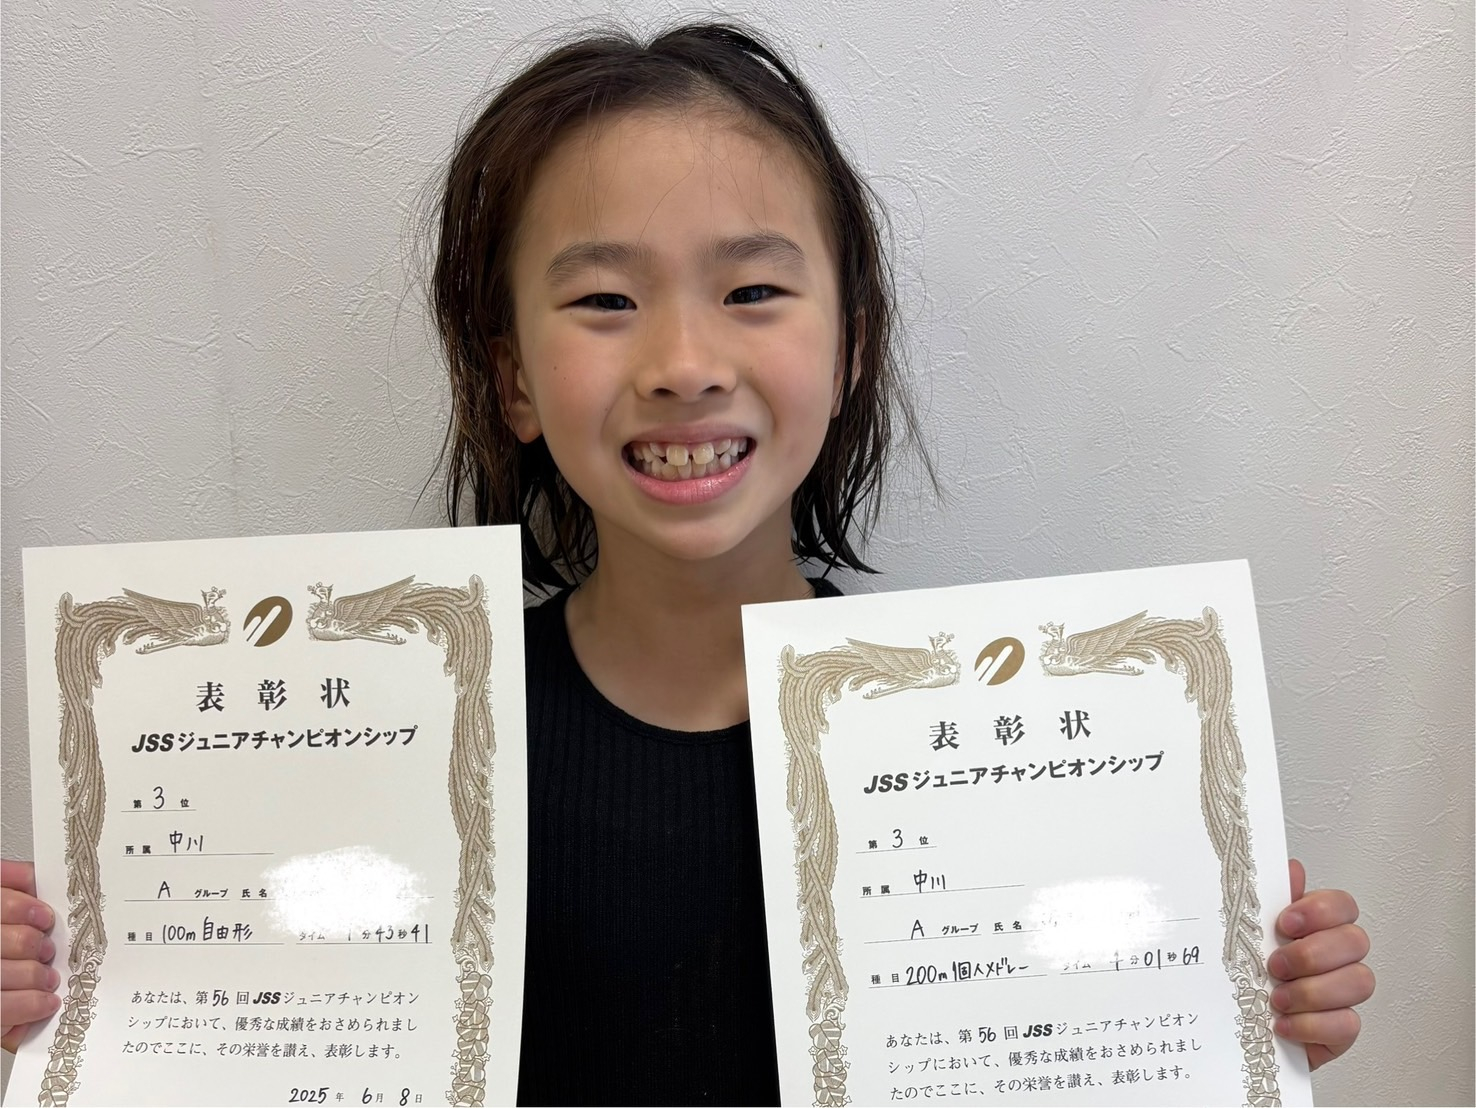 表彰状
JSSジュニアチャンピオンシップ
第 3 位
所属 中川
A グループ 氏名
種目 100m自由形 タイム 1分43秒41
あなたは、第56回JSSジュニアチャンピオン
シップにおいて、優秀な成績をおさめられまし
たのでここに、その栄誉を讃え、表彰します。
2025年 6月 8日
表彰状
JSSジュニアチャンピオンシップ
第 3 位
所属 中川
A グループ 氏名
種目 200m個人メドレー タイム 4分01秒69
あなたは、第56回JSSジュニアチャンピオン
シップにおいて、優秀な成績をおさめられまし
たのでここに、その栄誉を讃え、表彰します。